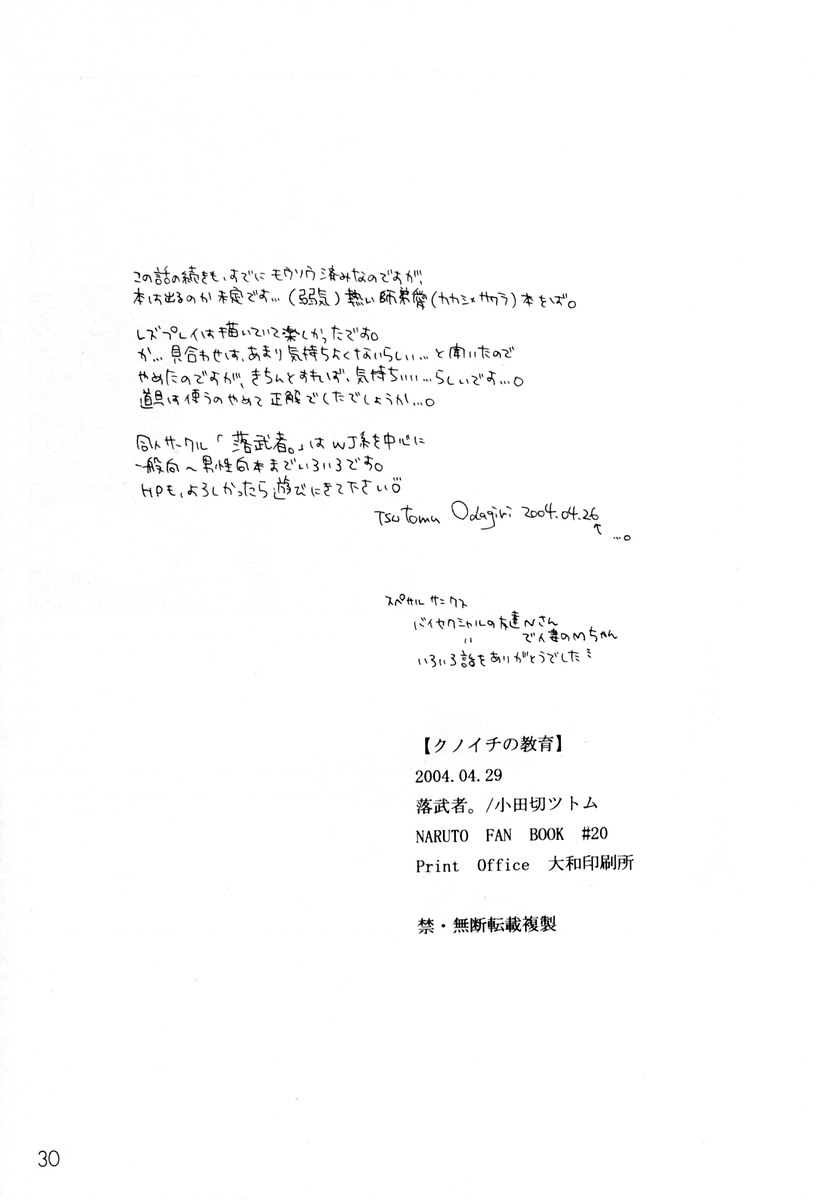 この話の続きも、すでにモウソウ済みなのですが、
本は出るのか未定です…(弱気)熱い師弟愛(カカシ×サクラ)本をば。
レズプレイは描いていて楽しかったです。
が…貝合わせは、あまり気持ちよくないらしい…と聞いたので
やめたのですが、きちんとすれば、気持ちいい…らしいです…。
道具は使うのやめて正解でしたでしょうか…。
同人サークル「落武者。」はWJ系を中心に
一般向〜男性向本までいろいろです。
HPも、よろしかったら遊びにきて下さい
Tsutomu Odagiri 2004.04.26
↑
…。
スペサルサンクス
バイセクシャルの友達Nさん
〃 で人妻のMちゃん
いろいろ話をありがとうでした
【クノイチの教育】
2004.04.29
落武者。/小田切ツトム
NARUTO FAN BOOK #20
Print Office 大和印刷所
禁・無断転載複製
30